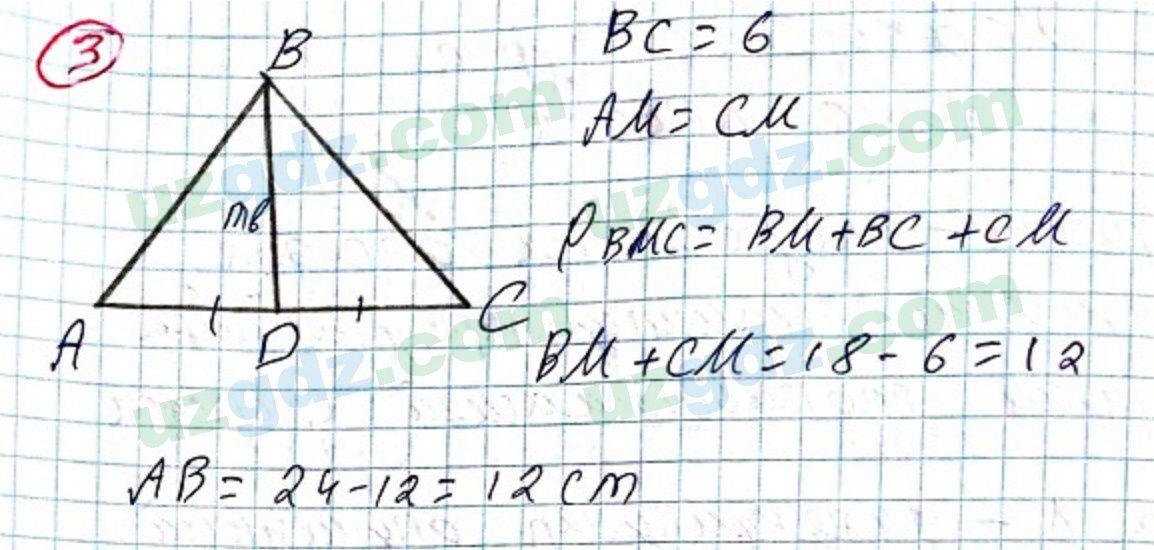 3
B
BC = 6
AM = CM
mb
P BMC = BM + BC + CM
A D C
BM + CM = 18 - 6 = 12
AB = 24 - 12 = 12 cm
uzgdz.com
uzgdz.com
uzgdz.com
uzgdz.com